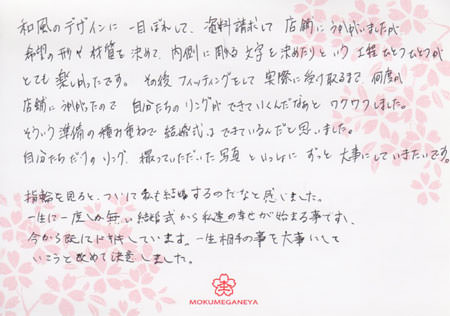 和風のデザインに一目ぼれして、資料請求して店舗にうかがいましたが
希望の形や材質を決めて、内側に彫る文字を決めたりという工程ひとつひとつが
とても楽しかったです。その後フィッティングをして実際に受け取るまで、何度か
店舗にうかがったので自分たちのリングができていくんだなあとワクワクしました。
そういう準備の積み重ねで結婚式はできているんだと思いました。
自分たちだけのリング、撮っていただいた写真といっしょにずっと大事にしていきたいです。
指輪を見ると、ついに私も結婚するのだなと感じました。
一生に一度しか無い結婚式から私達の幸せが始まる事ですし、
今から既にドキドキしています。一生相手の事を大事にして
いこうと改めて決意しました。
MOKUMEGANEYA